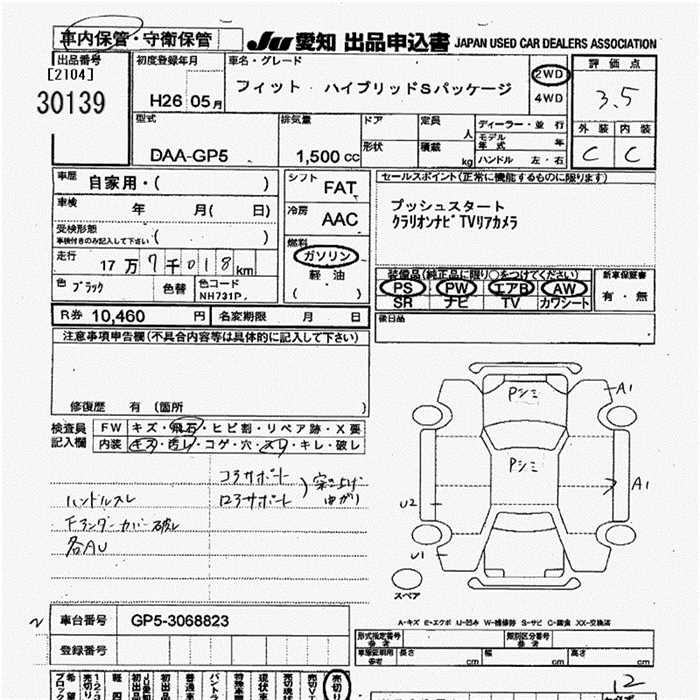 車内保管・守衛保管
JU 愛知 出品申込書 JAPAN USED CAR DEALERS ASSOCIATION
出品番号
[2104]
30139
初度登録年月
H26 05月
車名・グレード
フィット ハイブリッドSパッケージ
2WD
4WD
評価点
3.5
外装 内装
C C
型式
DAA-GP5
排気量
1,500 cc
ドア
形状
定員 人
積載 kg
ディーラー・並行
モデル年式 年
ハンドル 左・右
車歴 自家用・( )
車検 年 月( 日)
受検形態
車検付きのみ記入して下さい ( )
走行 17万7千018km
色 ブラック 色替 色コード NH731P
シフト FAT
冷房 AAC
燃料
ガソリン
軽油
( )
セールスポイント(正常に機能するものに限ります)
プッシュスタート
クラリオンナビTVリアカメラ
装備品(純正品に限り○をつけてください)
PS PW エアB AW
SR ナビ TV カワシート
新車保証書
有・無
後日品
R券 10,460 円 名変期限 月 日
注意事項申告欄(不具合内容等は具体的に記入して下さい)
修復歴 有 (箇所 )
検査員記入欄
FW キズ・飛石・ヒビ割・リペア跡・X要
内装 キズ・汚レ・コゲ・穴・スレ・キレ・破レ
コアサポート
ロアサポート
突き上げ
曲がり
ハンドルスレ
Fアンダーカバー破レ
各AU
Pシミ
A1
Pシミ
A1
U2
U1
スペア
A-キズ E-エクボ U-凹み W-補修跡 S-サビ C-腐食 XX-交換済
車台番号 GP5-3068823
登録番号
形式指定番号 参考
類別区分番号 参考
車庫証明用 参考 長さ cm 幅 cm 高さ cm
12